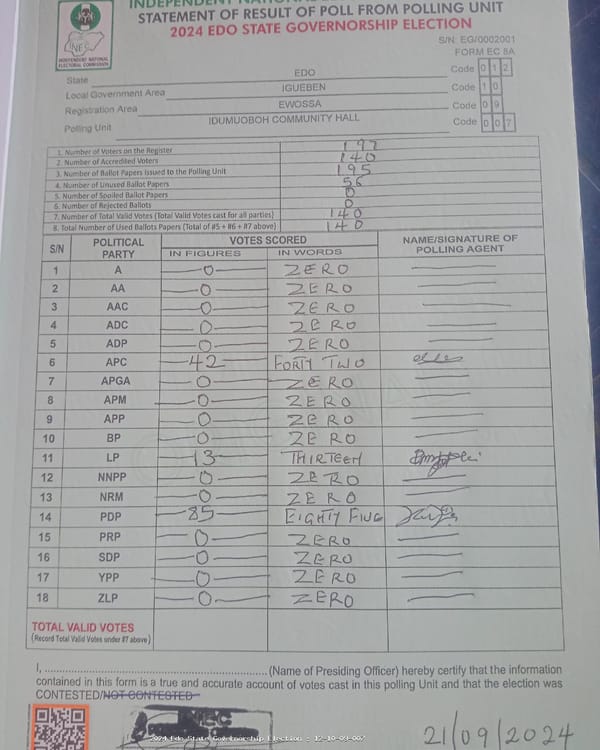 INDEPENDENT NATIONAL
STATEMENT OF RESULT OF POLL FROM POLLING UNIT
2024 EDO STATE GOVERNORSHIP ELECTION
INEC
INDEPENDENT NATIONAL ELECTORAL COMMISSION
S/N: EG/0002001
FORM EC 8A
State EDO Code 012
Local Government Area IGUEBEN Code 10
Registration Area EWOSSA Code 09
Polling Unit IDUMUOBOH COMMUNITY HALL Code 007
1. Number of Voters on the Register 197
2. Number of Accredited Voters 140
3. Number of Ballot Papers Issued to the Polling Unit 195
4. Number of Unused Ballot Papers 56
5. Number of Spoiled Ballot Papers 0
6. Number of Rejected Ballots 0
7. Number of Total Valid Votes (Total Valid Votes cast for all parties) 140
8. Total Number of Used Ballots Papers (Total of #5 + #6 + #7 above) 140
S/N POLITICAL PARTY VOTES SCORED NAME/SIGNATURE OF POLLING AGENT
IN FIGURES IN WORDS
1 A 0 ZERO
2 AA 0 ZERO
3 AAC 0 ZERO
4 ADC 0 ZERO
5 ADP 0 ZERO
6 APC 42 FORTY TWO
7 APGA 0 ZERO
8 APM 0 ZERO
9 APP 0 ZERO
10 BP 0 ZERO
11 LP 13 THIRTEEN
12 NNPP 0 ZERO
13 NRM 0 ZERO
14 PDP 85 EIGHTY FIVE
15 PRP 0 ZERO
16 SDP 0 ZERO
17 YPP 0 ZERO
18 ZLP 0 ZERO
TOTAL VALID VOTES
(Record Total Valid Votes under #7 above)
I, ............................................................(Name of Presiding Officer) hereby certify that the information
contained in this form is a true and accurate account of votes cast in this polling Unit and that the election was
CONTESTED/NOT CONTESTED
INEC
2024 Edo State Governorship Election : 12-10-09-007
21/09/2024